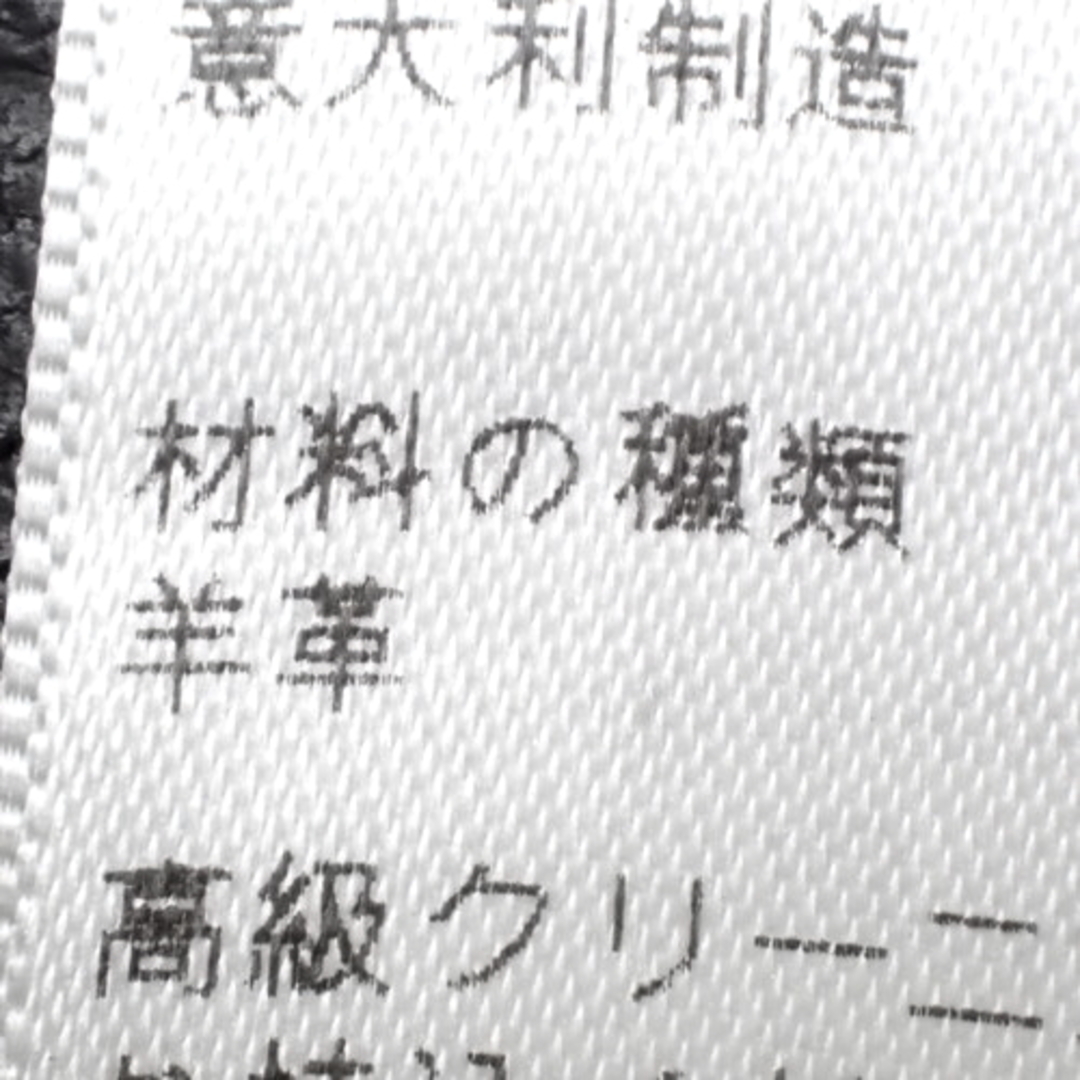 意大利制造
材料の種類
羊革
高級クリーニ